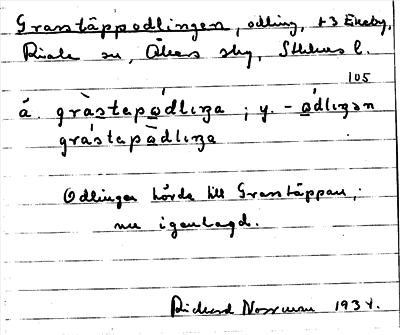 Granstäppodlingen, odling, t3 Ekeby,
Riala sn, Åkers skg, Sthlms l.
105
å. gràstepo̲dlıŋa ; y. - o̲dlıŋən
gràstepàdlıŋa
Odlingen hörde till Granstäppan,
nu igenlagd.
Rickard Norrman 1934.